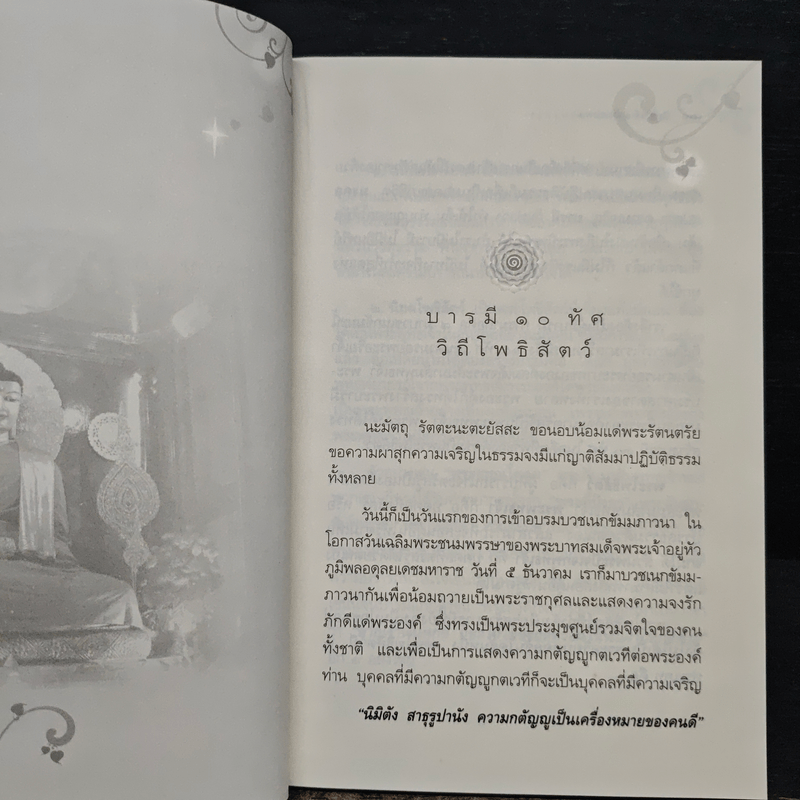 ๑
บารมี ๑๐ ทัศ
วิถีโพธิสัตว์
นะมัตถุ รัตตะนะตะยัสสะ ขอนอบน้อมแด่พระรัตนตรัย
ขอความผาสุกความเจริญในธรรมจงมีแก่ญาติสัมมาปฏิบัติธรรม
ทั้งหลาย
วันนี้ก็เป็นวันแรกของการเข้าอบรมบวชเนกขัมมภาวนา ใน
โอกาสวันเฉลิมพระชนมพรรษาของพระบาทสมเด็จพระเจ้าอยู่หัว
ภูมิพลอดุลยเดชมหาราช วันที่ ๕ ธันวาคม เราก็มาบวชเนกขัมม-
ภาวนากันเพื่อน้อมถวายเป็นพระราชกุศลและแสดงความจงรัก
ภักดีแด่พระองค์ ซึ่งทรงเป็นพระประมุขศูนย์รวมจิตใจของคน
ทั้งชาติ และเพื่อเป็นการแสดงความกตัญญูกตเวทีต่อพระองค์
ท่าน บุคคลที่มีความกตัญญูกตเวทีก็จะเป็นบุคคลที่มีความเจริญ
“นิมิตัง สาธุรูปานัง ความกตัญญูเป็นเครื่องหมายของคนดี”